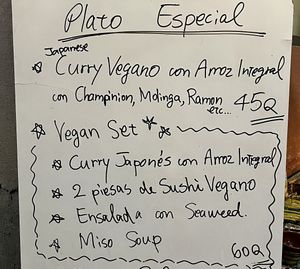 Plato Especial
Japanese
Curry Vegano con Arroz Integral
con Champinion, Molinga, Ramon etc... 45Q
Vegan Set
Curry Japonés con Arroz Integral
2 piesas de Sushi Vegano
Ensalada con Seaweed.
Miso Soup
60Q